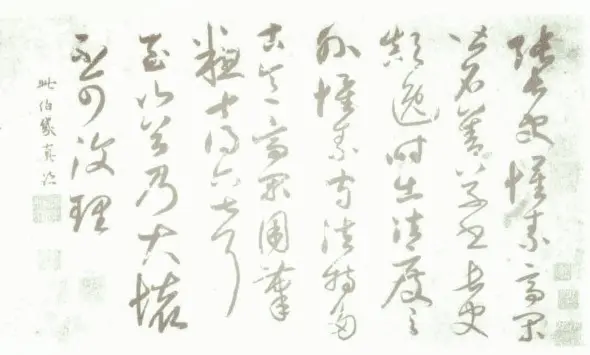 張長史懷素高閑
皆名善草書長史
顛逸時出法度之
外懷素守法特多
古意高閑用筆
粗十得六七耳
至山谷乃大壞
不可復理
此伯幾真